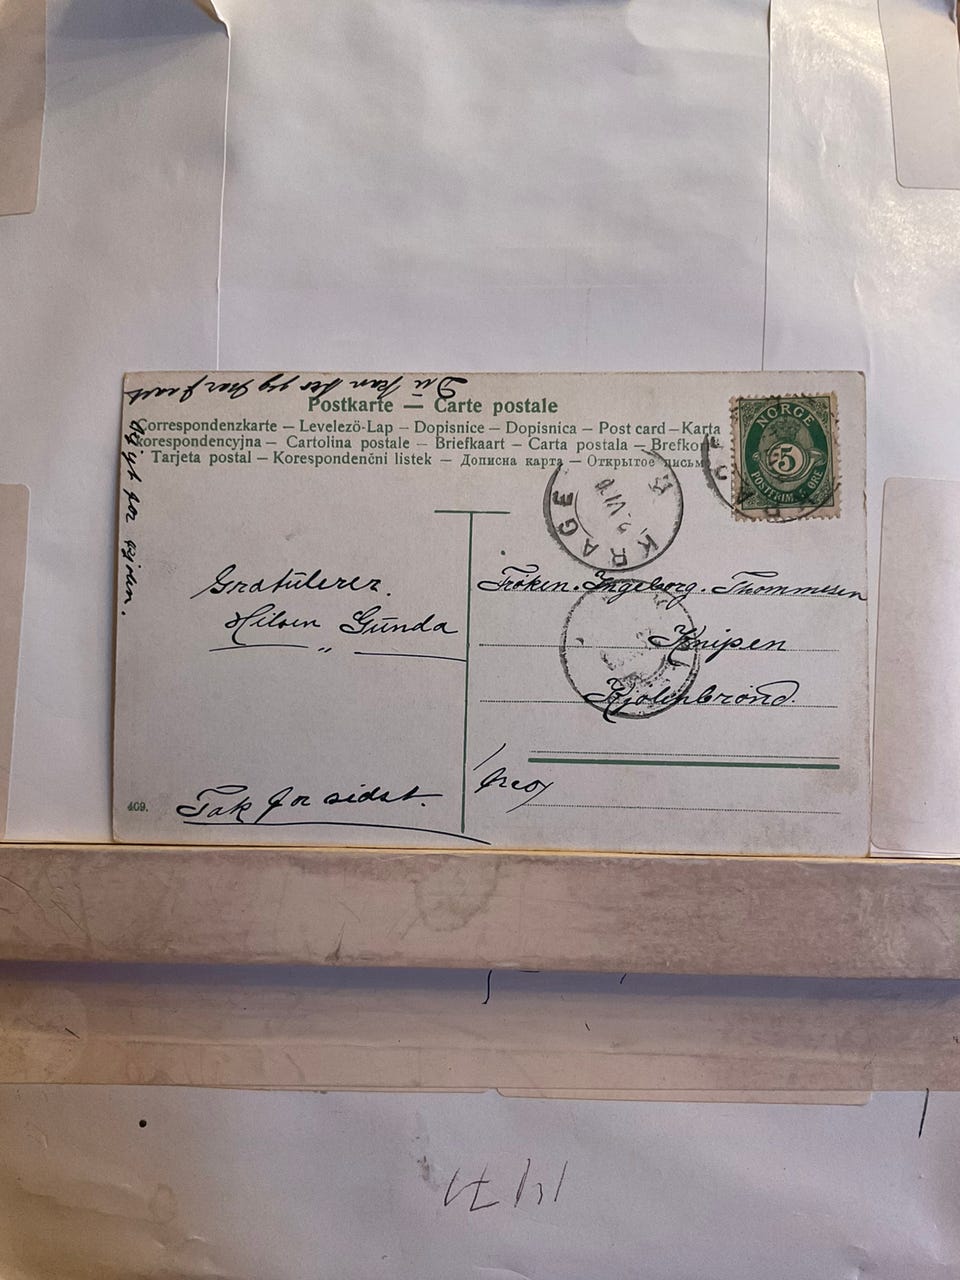 Du kan tro jeg har faat
Postkarte — Carte postale
Correspondenzkarte – Levelező-Lap – Dopisnice – Dopisnica – Post card – Karta
korespondencyjna – Cartolina postale – Briefkaart – Carta postala – Brefkort
Tarjeta postal – Korespondenční listek – Дописна карта – Открытое письмо
NORGE
5
POSTFRIM. 5 ØRE
KRAGERØ
for kjolen.
Gratülerer.
Hilsen Günda
Frøken. Ingeborg. Thommesen
Knipen
Kjølebrønd.
Tak for sidst.
409.